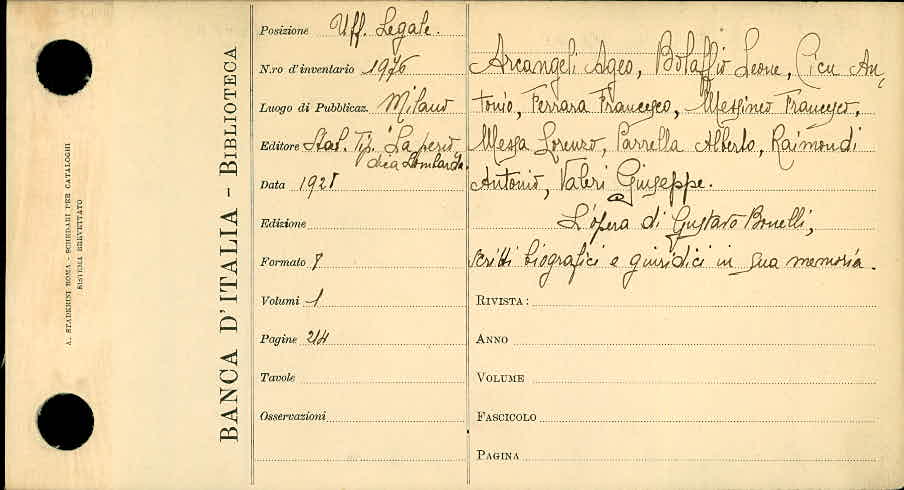 A. STADERINI ROMA - SCHEDARI PER CATALOGHI
SISTEMA BREVETTATO
BANCA D'ITALIA - BIBLIOTECA
Posizione Uff. Legale.
N.ro d'inventario 1976
Luogo di Pubblicaz. Milano
Editore Stab. Tip. "La perio
dica Lombarda".
Data 192
Edizione
Formato 8
Volumi 1
Pagine 214
Tavole
Osservazioni
Arcangeli Ageo, Bolaffio Leone, Cicu An-
tonio, Ferrara Francesco, Messineo Francesco,
Messa Lorenzo, Parrella Alberto, Raimondi
Antonio, Valeri Giuseppe.
L'opera di Gustavo Bonelli,
scritti biografici e giuridici in sua memoria.
RIVISTA:
ANNO
VOLUME
FASCICOLO
PAGINA